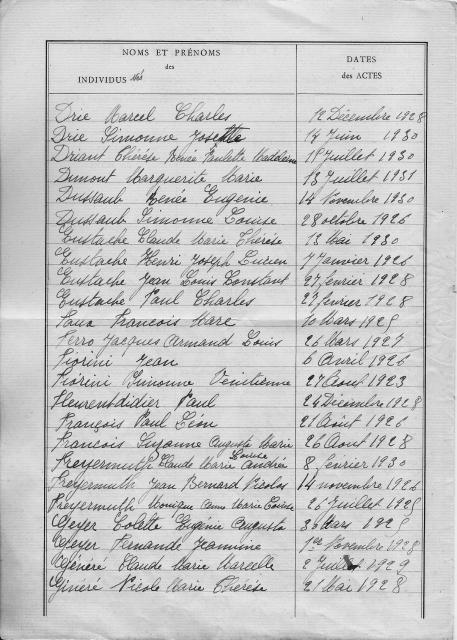 NOMS ET PRÉNOMS
des
INDIVIDUS nés
DATES
des ACTES
Drie Marcel Charles 12 Décembre 1928
Drie Simonne Josette 14 Juin 1930
Driant Thérèse Renée Paulette Madeleine 18 Juillet 1930
Dumont Marguerite Marie 13 Juillet 1931
Dussaub Renée Eugenie 14 Novembre 1930
Dussaub Simonne Louise 28 octobre 1926
Eustache Claude Marie Thérèse 13 Mai 1930
Eustache Henri Joseph Lucien 7 Janvier 1926
Eustache Jean Louis Constant 27 fevrier 1928
Eustache Paul Charles 27 fevrier 1928
Francois Marc 10 Mars 1925
Ferro Jacques Armand Louis 26 Mars 1927
Fiorini Jean 6 Avril 1926
Fiorini Simonne Venitienne 27 Aout 1923
Fleurentdidier Paul 24 Décembre 1928
François Paul Léon 21 Août 1926
Francois Suzanne Augusta Marie 26 Aout 1928
Freyermuth Claude Marie Louise Andrée 8 fevrier 1930
Freyermuth Jean Bernard Nicolas 14 novembre 1926
Freyermuth Monique Anne Marie Louise 26 Juillet 1925
Geyer Colette Eugenie Augusta 30 Mars 1925
Geyer Fernande Jeannine 1er Novembre 1928
Généré Claude Marie Marcelle 2 Juillet 1929
Généré Nicole Marie Thérèse 21 Mai 1928